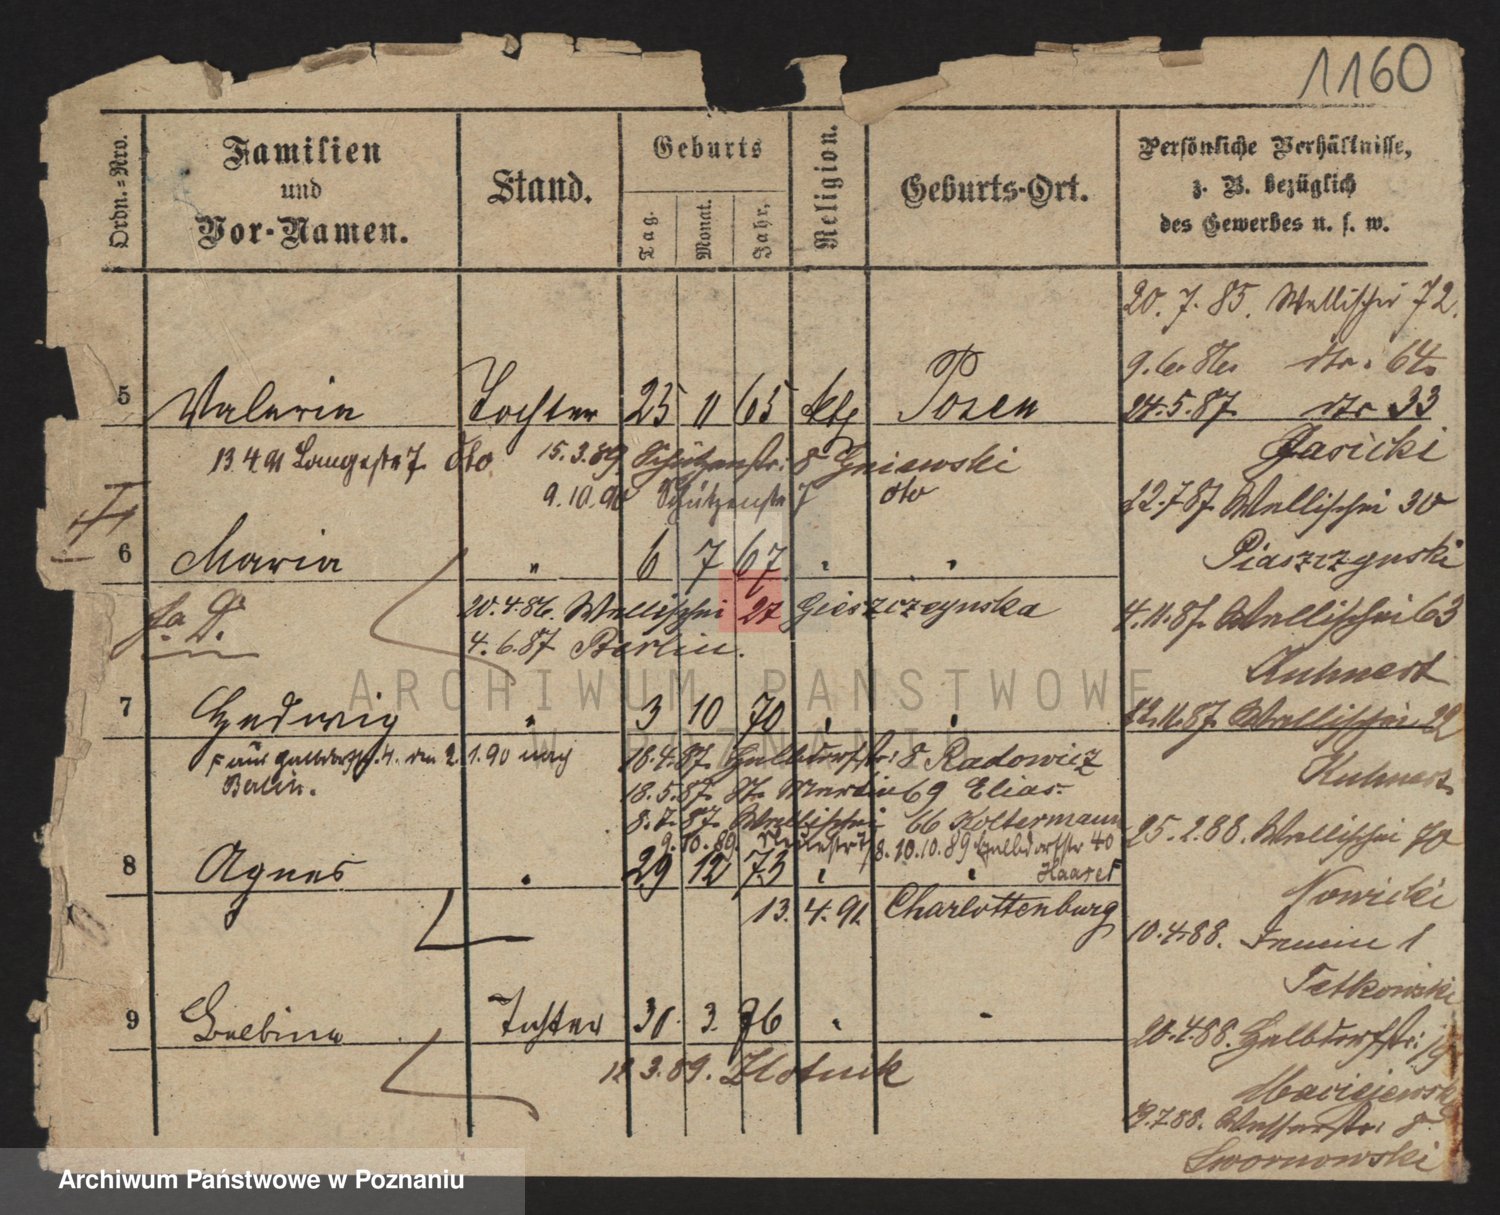 1160
Ordn.=Nro.
Familien
und
Vor-Namen.
Stand.
Geburts
Tag.
Monat.
Jahr.
Religion.
Geburts-Ort.
Persönliche Verhältnisse,
z. B. bezüglich
des Gewerbes u. s. w.
20. 7. 85. Wallischei 72.
9. 6. 86. dto. 64
5 Valeria Tochter 25 11 65 kth Posen
24. 5. 87. dto 33
Jasicki
13. 4 91 Langestr 7. dto 15. 3. 89 Schützenstr. 8 Gniewski
9. 10. 90 Schützenstr 7 dto
22. 7 87. Wallischei 30
Piaszczynski
6 Maria " 6 7 67 " "
20. 4. 86. Wallischei 27 Gieszczynska
4. 6. 87 Berlin.
4. 11. 87. Wallischei 63
Kuhnert
7 Hedwig " 3 10 70 " "
12. 11. 87. Wallischei 22
Kuhnert
2. 1. 90 nach
Berlin.
18. 4. 87. Halbdorfstr. 8 Radowicz
18. 5. 87. St. Martin 69 Elias.
8. 7. 87. Wallischei 66 Koltermann
9. 10. 89. 10. 10. 89 Halbdorfstr 40
Haaser
8 Agnes " 29 12 73 " "
13. 4. 91. Charlottenburg
25. 2. 88. Wallischei
Nowicki
10. 4. 88. 1
Tetkowski
9 Balbina Tochter 30. 3. 76 " "
12. 3. 89. Zlotnik
20. 4. 88. Halbdorfstr. 19
Maciejewski
19. 7 88. Wasserstr. 8
Swornowski
ARCHIWUM PAŃSTWOWE
W POZNANIU
Archiwum Państwowe w Poznaniu